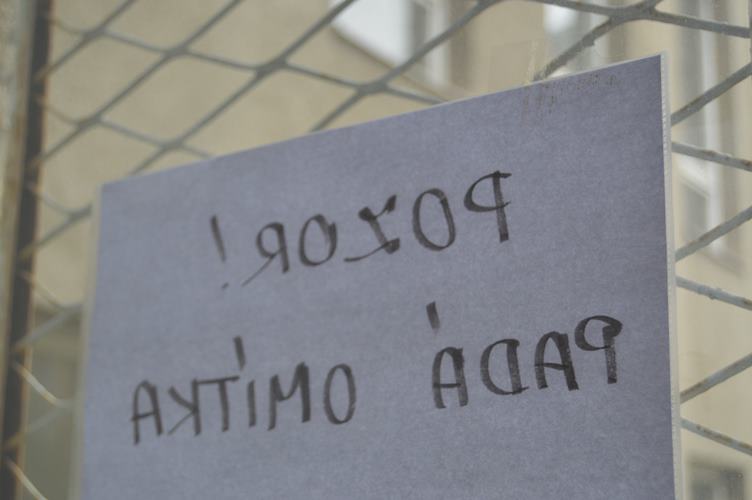 POZOR!
PADÁ OMÍTKA